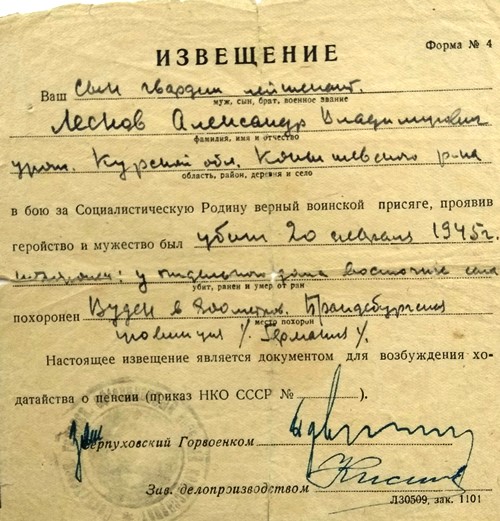 Форма № 4
ИЗВЕЩЕНИЕ
Ваш сын гвардии лейтенант
муж, сын, брат, военное звание
Лесков Александр Владимирович
фамилия, имя и отчество
урож. Курской обл. р-на
область, район, деревня и село
в бою за Социалистическую Родину верный воинской присяге, проявив
геройство и мужество был убит 20 февраля 1945 г.
у отдельного дома восточнее села
убит, ранен и умер от ран
похоронен Вуден в 800 метров. Бранденбургская
место похорон
провинция /Германия/.
Настоящее извещение является документом для возбуждения хо-
датайства о пенсии (приказ НКО СССР № ).
Серпуховский Горвоенком
Зав. делопроизводством
Л30509, зак. 1101